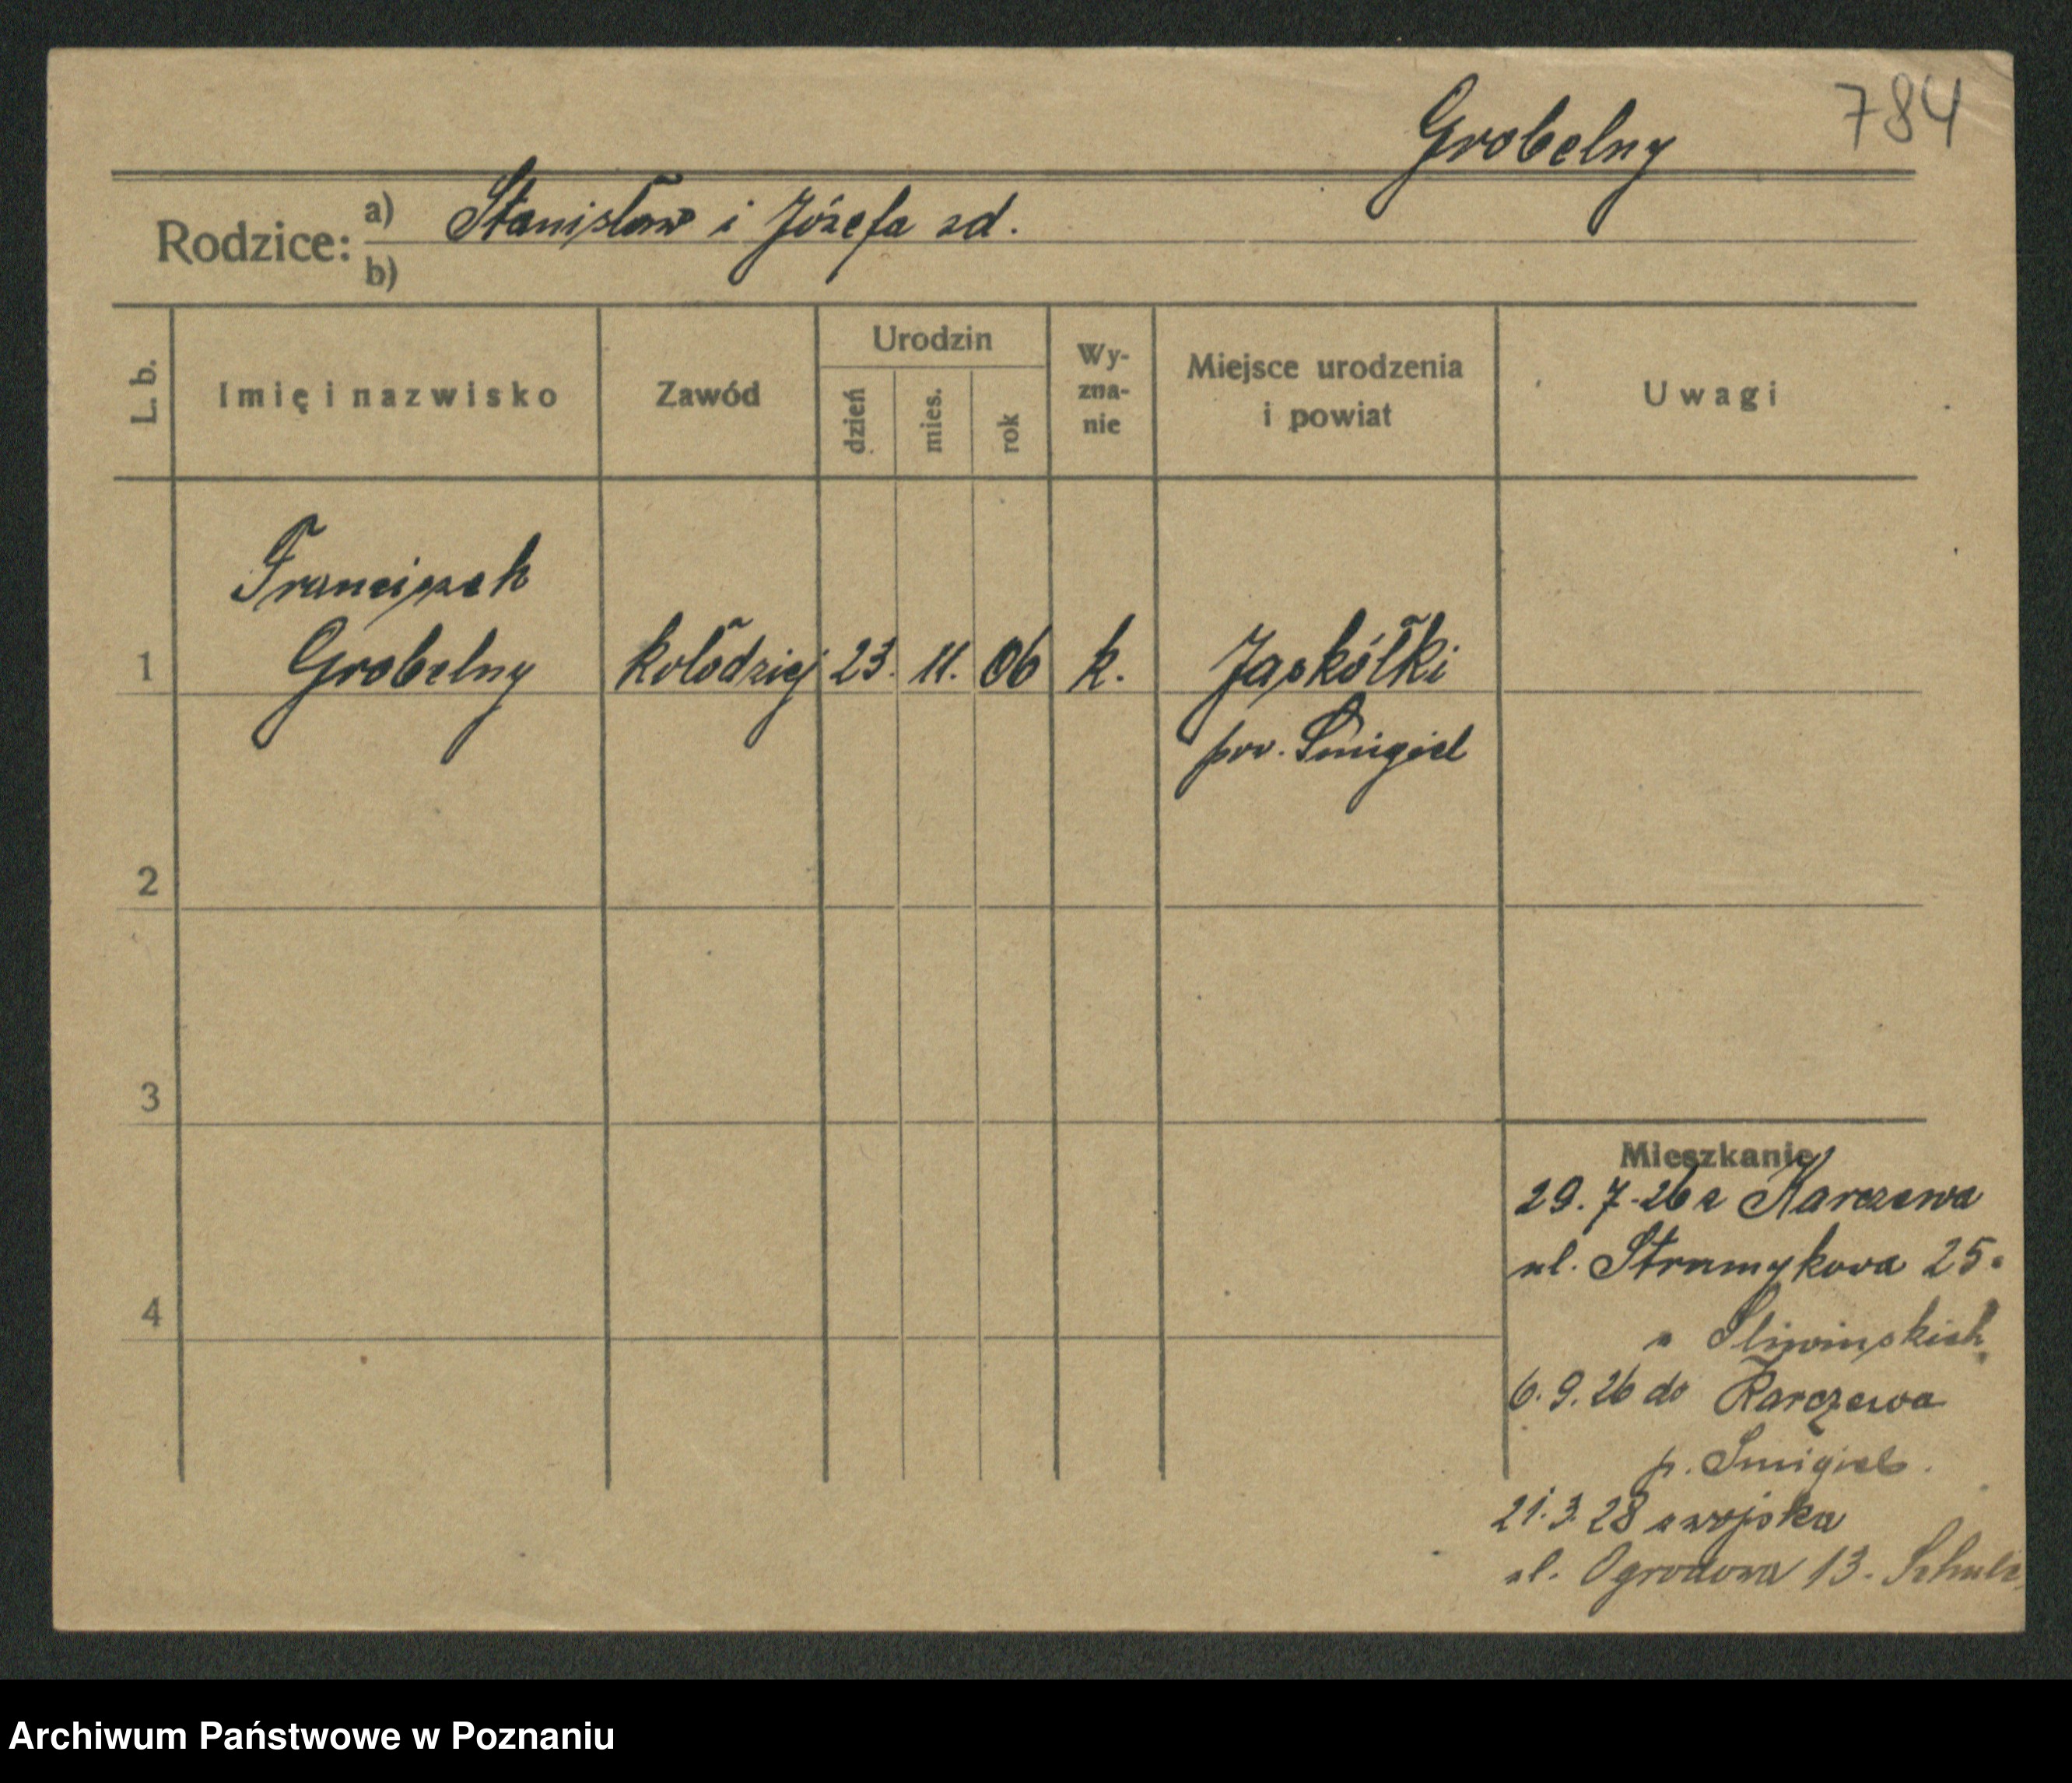 784
Grobelny
Rodzice: a) Stanisław i Józefa zd.
b)
L. b.
Imię i nazwisko
Zawód
Urodzin
dzień
mies.
rok
Wy-
zna-
nie
Miejsce urodzenia
i powiat
Uwagi
Franciszek
1 Grobelny kołodziej 23. 11. 06 k. Jaskółki
pow. Śmigiel
2
3
4
Mieszkanie
29. 7. 26 z Karczewa
ul. Strumykowa 25.
u Sliwinskich
6. 9. 26 do Karczewa
p. Smigiel.
21. 3. 28 z wojska
ul. Ogrodowa 13. Schulz
Archiwum Państwowe w Poznaniu